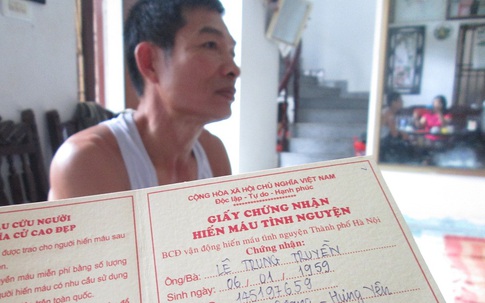 ÁU CỨU NGƯỜI
ĨA CỬ CAO ĐẸP
được trao cho người hiến máu sau
yền máu miễn phí bằng số lượng
có nhu cầu sử dụng
trên toàn quốc.
CỘNG HÒA XÃ HỘI CHỦ NGHĨA VIỆT NAM
Độc lập - Tự do - Hạnh phúc
GIẤY CHỨNG NHẬN
HIẾN MÁU TÌNH NGUYỆN
BCĐ vận động hiến máu tình nguyện Thành phố Hà Nội
Chứng nhận:
Ông/Bà: LÊ TRUNG TRUYỀN
Sinh ngày: 06/01/1959
Hưng Yên